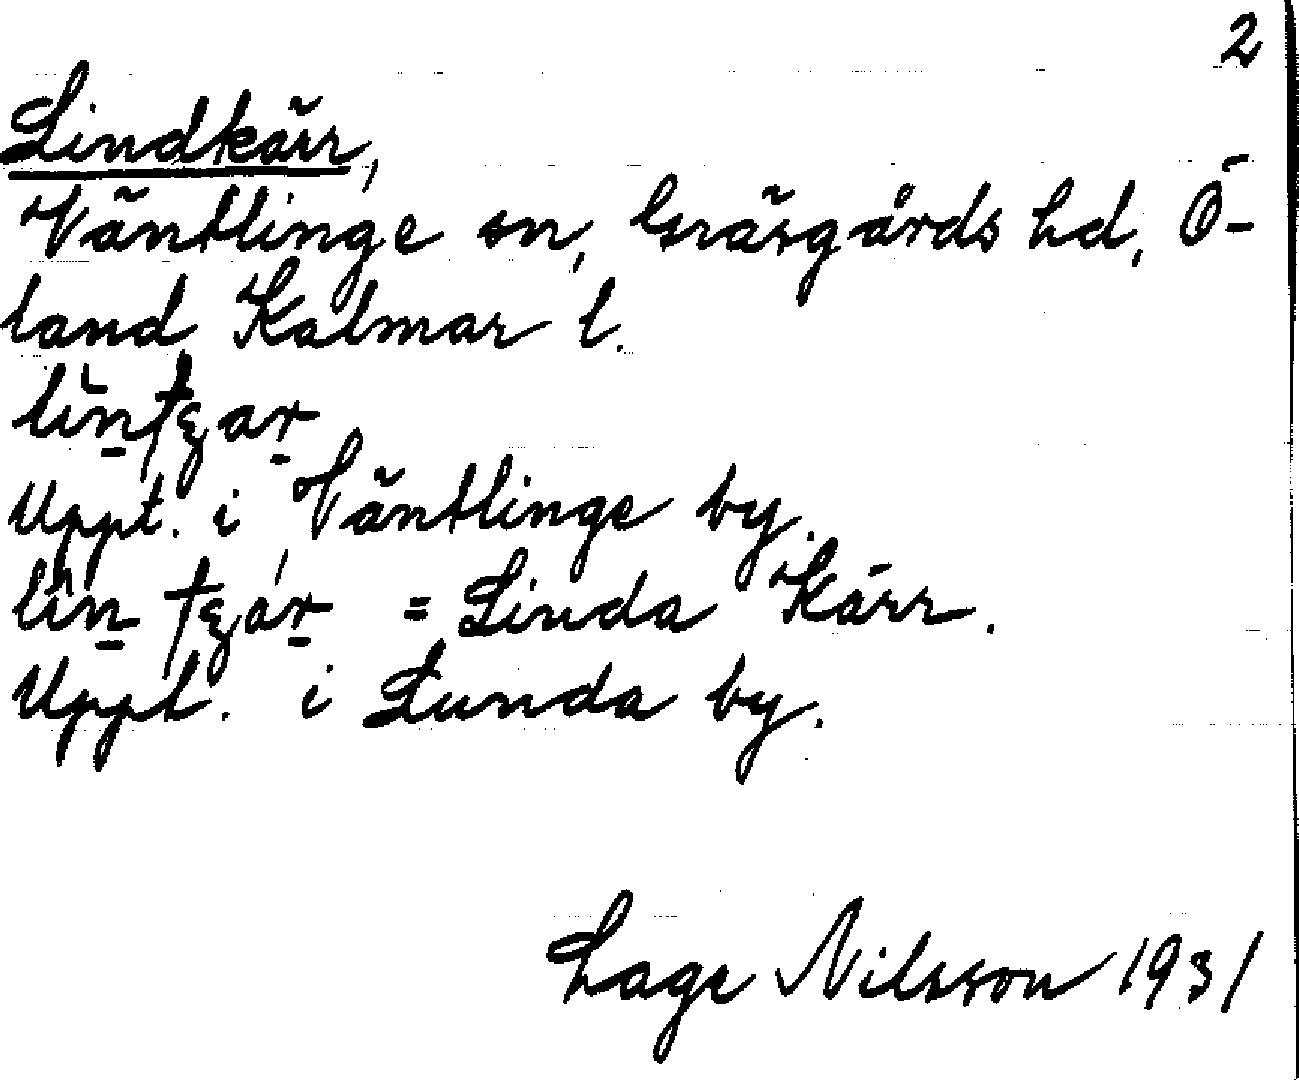 2
Lindkärr,
Väntlinge sn, Gräsgårds hd, Ö-
land Kalmar l.
Uppt. i Väntlinge by.
= Linda Kärr.
Uppt. i Lunda by.
Lage Nilsson 1931